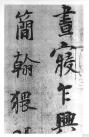 晝寢乍興
簡翰猥